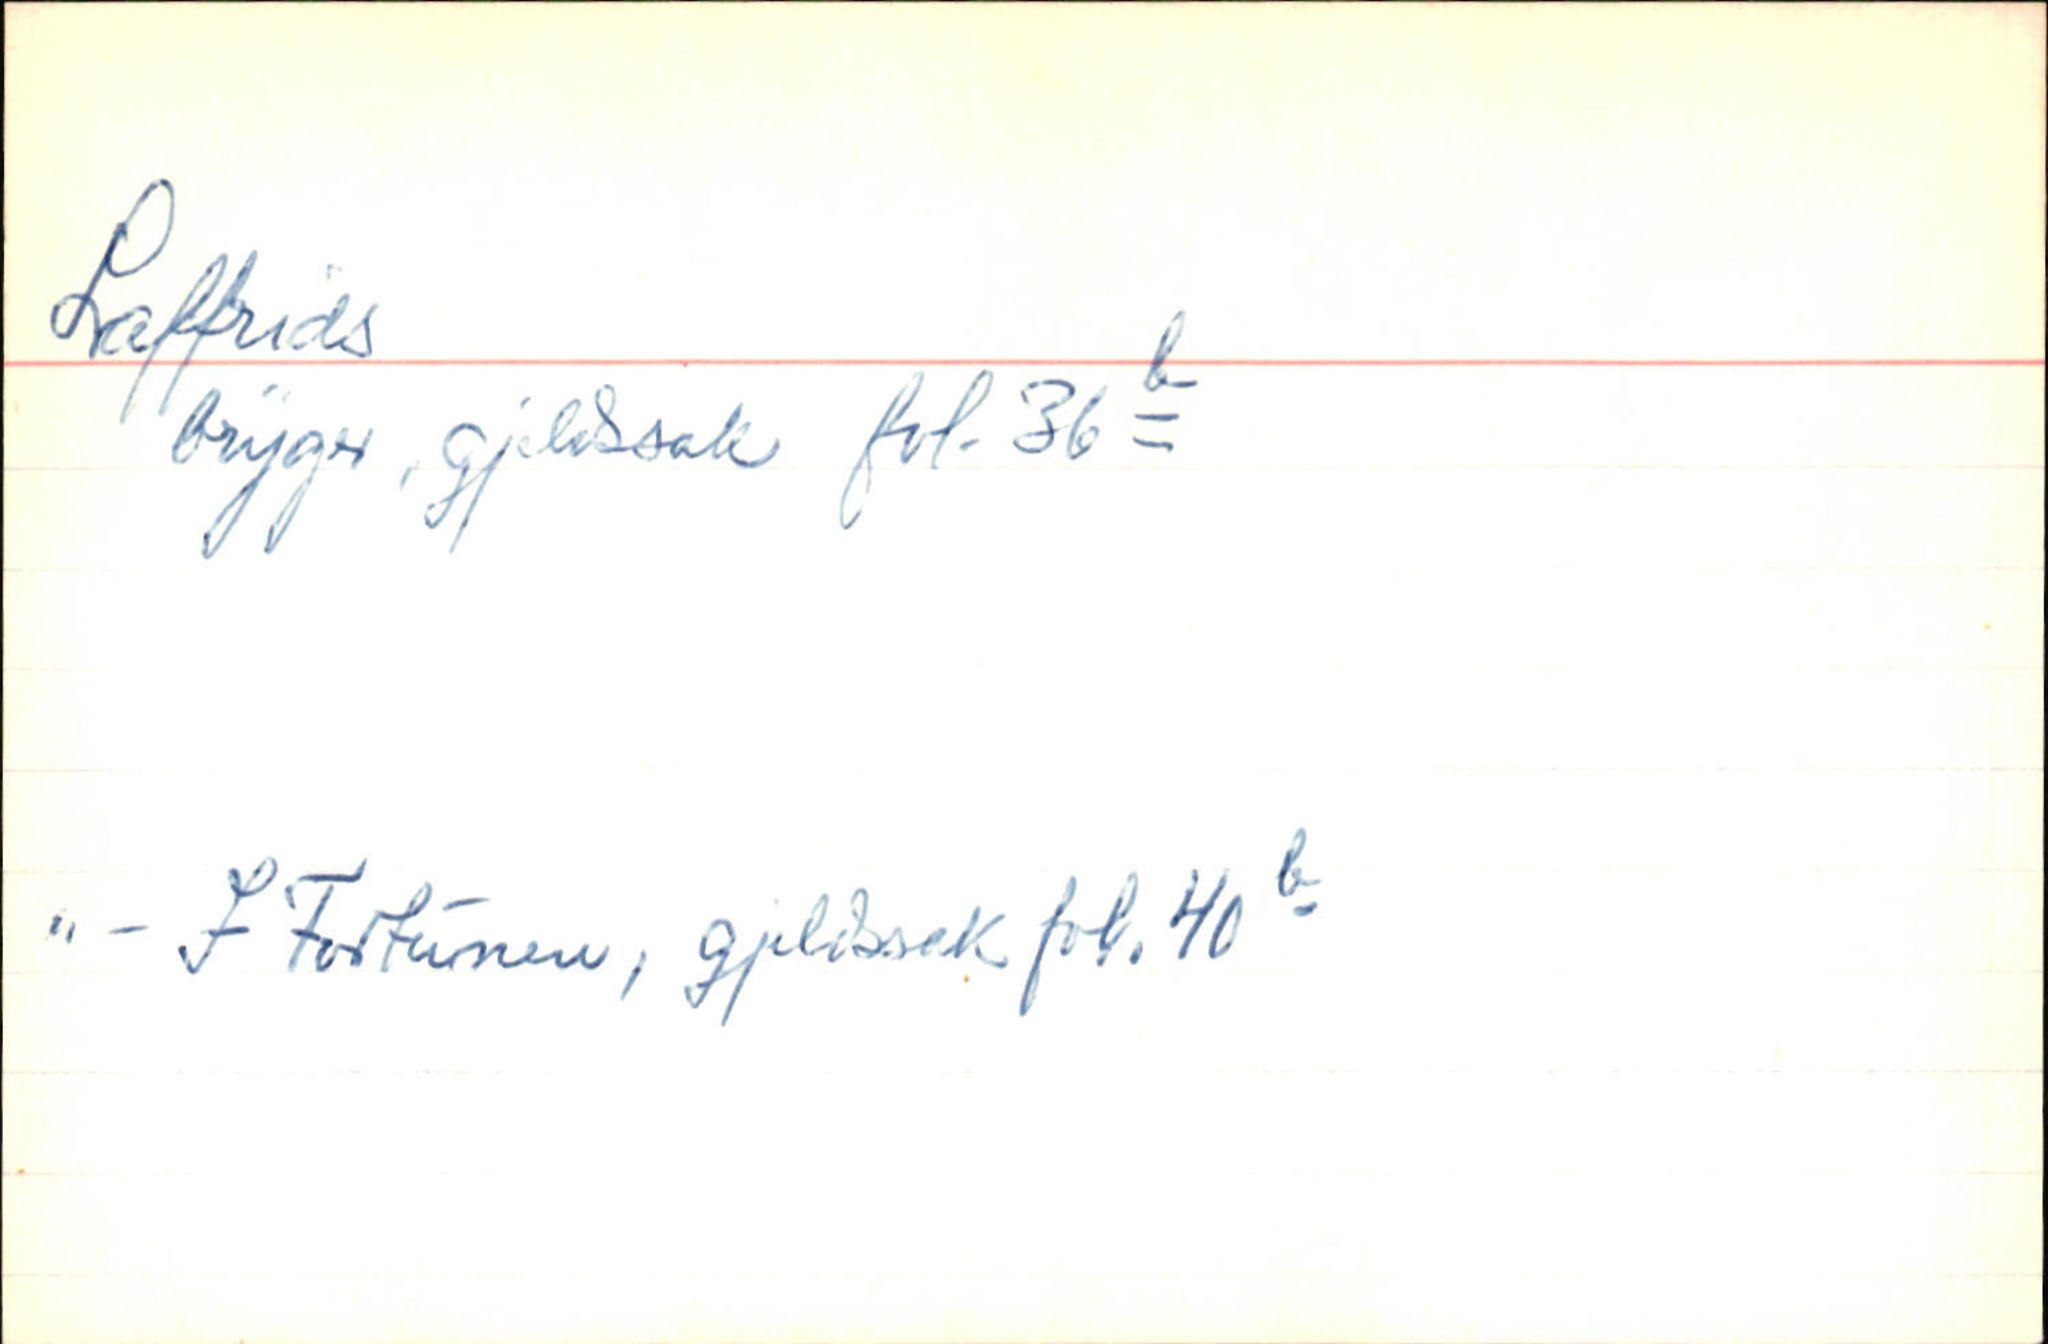 Laffrids
brÿger, gjeldssak fol. 36 b
" - I Fortunen, gjeldssak fol. 40 b